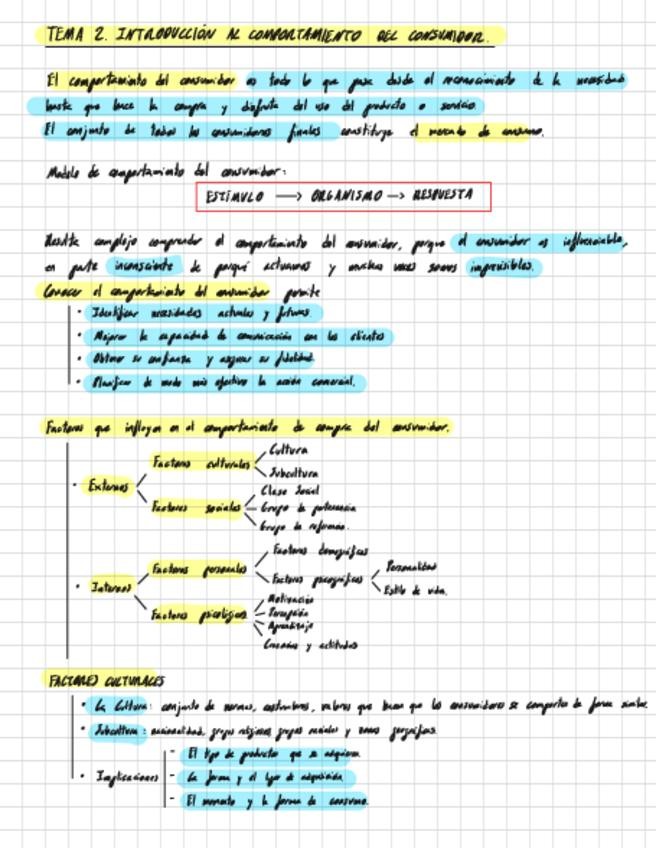 TEMA 2. INTRODUCCIÓN AL COMPORTAMIENTO DEL CONSUMIDOR.
El comportamiento del consumidor es todo lo que pasa desde el reconocimiento de la necesidad
hasta que hace la compra y disfruta del uso del producto o servicio
El conjunto de todos los consumidores finales constituye el mercado de consumo.
Modelo de comportamiento del consumidor:
ESTÍMULO → ORGANISMO → RESPUESTA
Resulta complejo comprender el comportamiento del consumidor, porque el consumidor es influenciable,
en parte inconsciente de porqué actuamos y muchas veces somos imprevisibles.
Conocer el comportamiento del consumidor permite
• Identificar necesidades actuales y futuras.
• Mejorar la capacidad de comunicación con los clientes
• Obtener su confianza y asegurar su fidelidad.
• Planificar de modo más efectivo la acción comercial.
Factores que influyen en el comportamiento de compra del consumidor.
• Externos
Factores culturales
Cultura
Subcultura
Factores sociales
Clase Social
Grupo de pertenencia
Grupo de referencia.
• Internos
Factores personales
Factores demográficos
Factores psicográficos
Personalidad
Estilo de vida.
Factores psicológicos
Motivación
Percepción
Aprendizaje
Creencias y actitudes
FACTORES CULTURALES
• La Cultura: conjunto de normas, costumbres, valores que hacen que los consumidores se comporten de forma similar.
• Subcultura: nacionalidad, grupos religiosos, grupos raciales y zonas geográficas.
• Implicaciones
- El tipo de productos que se adquieren.
- La forma y el lugar de adquisición
- El momento y la forma de consumo.